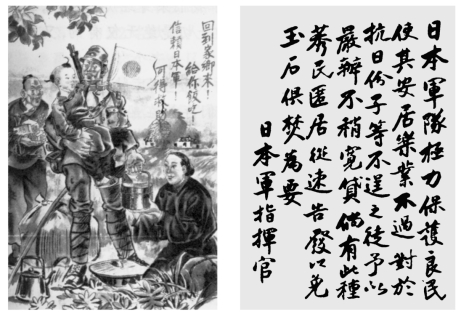 回到家鄉來!
給你飯吃!
信賴日本軍!
可得救助!
日本軍隊極力保護良民
使其安居樂業不過對於
抗日份子等不逞之徒予以
嚴辦不稍寬貸倘有此種
莠民匿居從速告發以免
玉石俱焚為要
日本軍指揮官